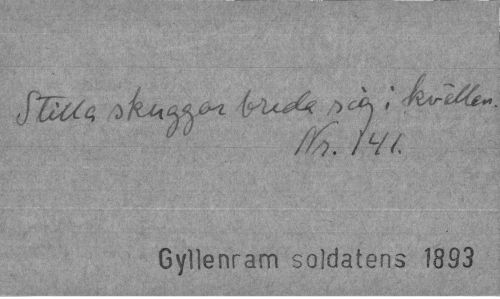 Stilla skuggor breda sig i kvällen.
Nr. 141.
Gyllenram soldatens 1893